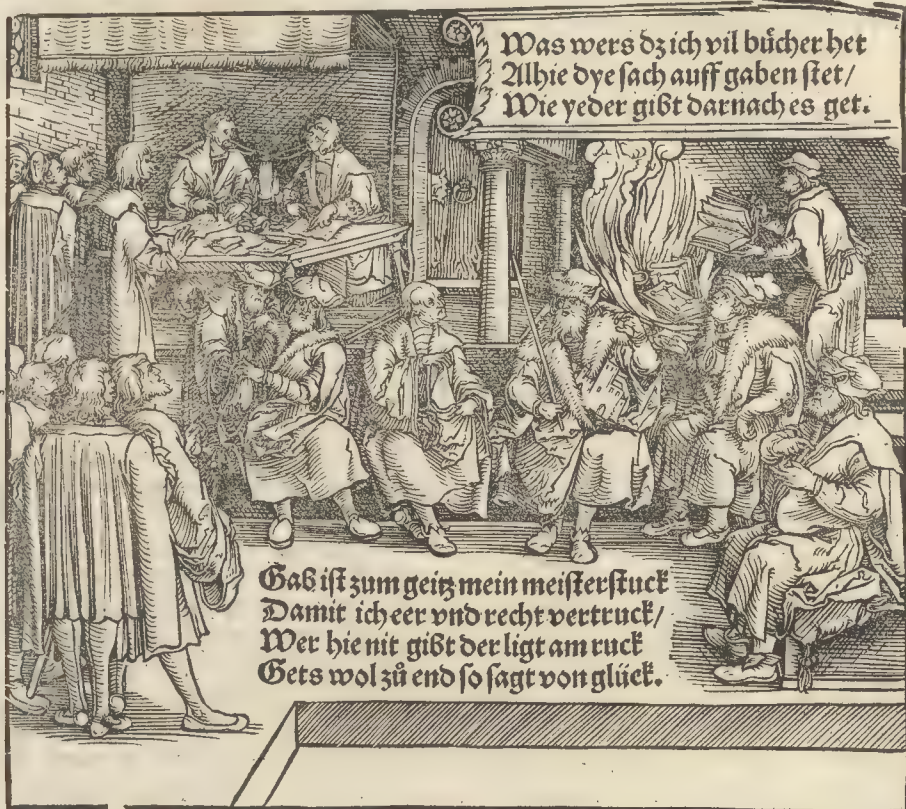 Was wers dz ich vil bücher het
Alhie dye sach auff gaben stet/
Wie yeder gibt darnach es get.
Gab ist zum geitz mein meisterstuck
Damit ich eer vnd recht vertruck/
Wer hie nit gibt der ligt am ruck
Gets wol zů end so sagt von glück.